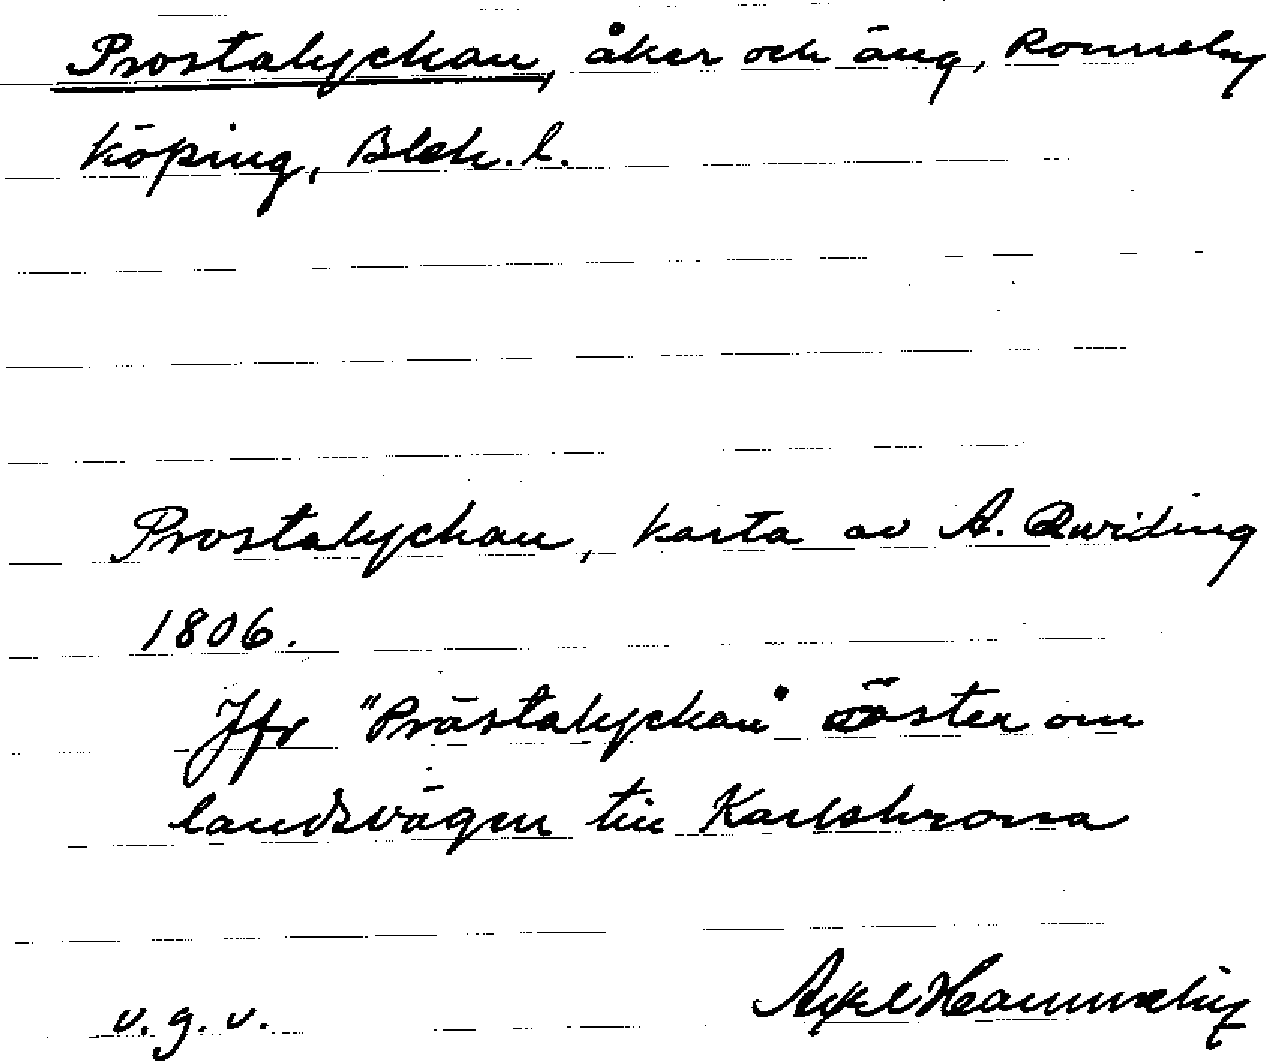 Prostalyckan, åker och äng, Ronneby
köping, Blek. l.
Prostalyckan, karta av A. Qwiding
1806.
Jfr "Prästalyckan" öster om
landsvägen till Karlskrona
v. g. v. Axel Hammelin